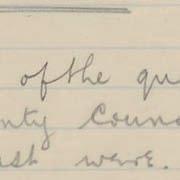 of the qu
nty Counc
ust were.